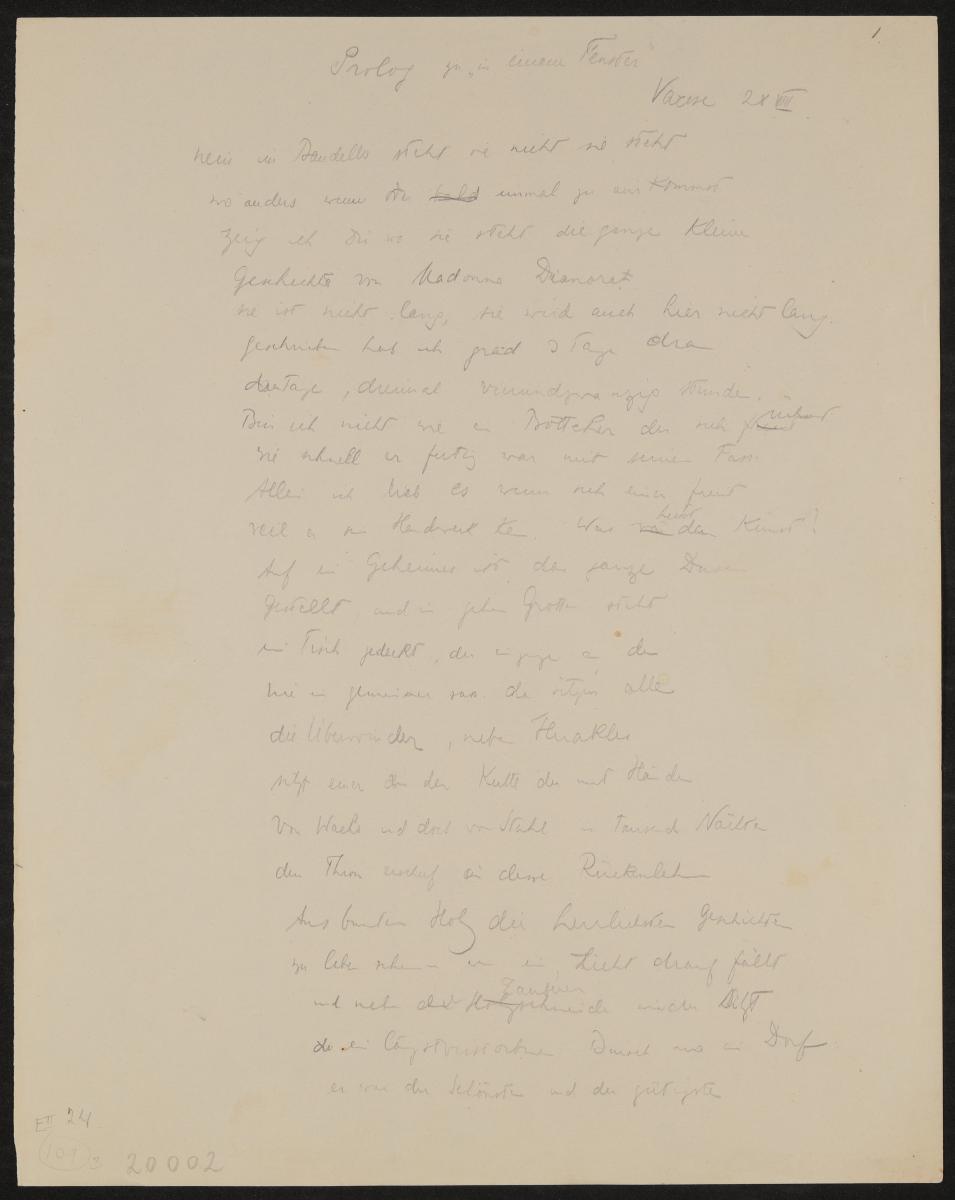 1
Prolog zu „in einem Fenster"
Varese 28 VIII
Nein im Bandello steht sie nicht sie steht
wo anders wenn Du bald einmal zu mir kommst
zeig ich Dir wo sie steht die ganze kleine
Geschichte von Madonna Dianora
sie ist nicht lang, sie wird auch hier nicht lang.
geschrieben hab ich grad 3 Tage dran
drei Tage, dreimal vierundzwanzig Stunden.
Bin ich nicht wie ein Böttcher der sich rühmt
wie schnell er fertig war mit seinem Fass.
Allein ich lieb es wenn sich einer freut
weil er sein Handwerk kann. Was heisst denn Kunst?
Auf ein Geheimnis ist das ganze Dasein
gestellt und in geheimen Grotten steht
ein Tisch gedeckt, der einzige an dem
nie ein gemeiner sass. da sitzen alle
die Überwinder, neben Herakles
sitzt einer in der Kutte der mit Händen
von Wachs und doch von Stahl in tausend Nächten
den Thron erschuf in dessen Rückenlehne
Aus buntem Holz die herrlichsten Geschichten
zu leben scheinen wenn ein Licht drauf fällt
und neben diesem Zauberer sitzt
ein längstverstorbner Bursch aus einem Dorf
er war der Schönste und der gütigste
E II 24
109 3
20002